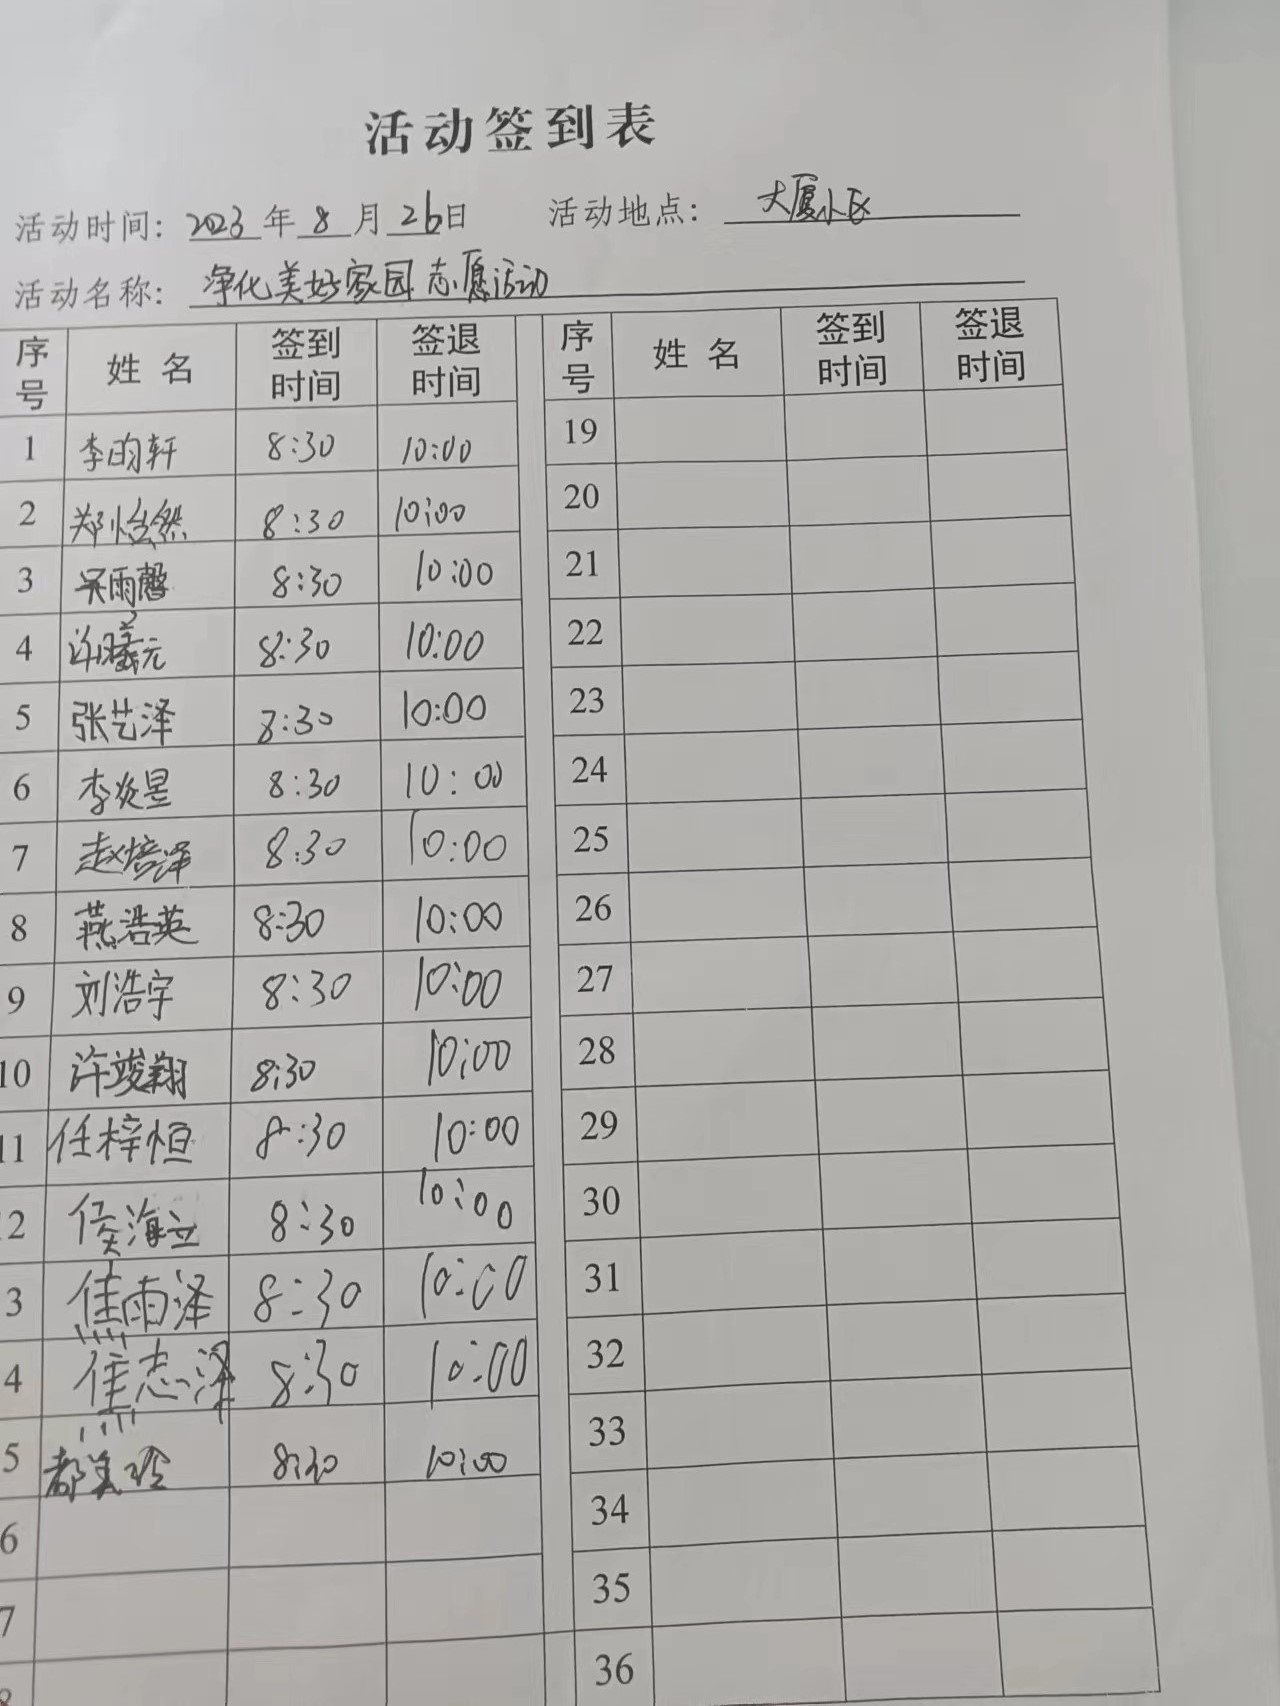 活动签到表
活动时间: 2023 年 8 月 26 日 活动地点: 大厦小区
活动名称: 净化美好家园志愿活动
序号 姓名 签到时间 签退时间 序号 姓名 签到时间 签退时间
1 李昀轩 8:30 10:00 19
2 郑怡然 8:30 10:00 20
3 吴雨馨 8:30 10:00 21
4 许曦元 8:30 10:00 22
5 张艺泽 8:30 10:00 23
6 李炎星 8:30 10:00 24
7 赵培泽 8:30 10:00 25
8 燕浩英 8:30 10:00 26
9 刘浩宇 8:30 10:00 27
10 许竣翔 8:30 10:00 28
11 任梓恒 8:30 10:00 29
2 侯海立 8:30 10:00 30
3 焦雨泽 8:30 10:00 31
4 焦志泽 8:30 10:00 32
5 8:30 10:00 33
6 34
7 35
8 36